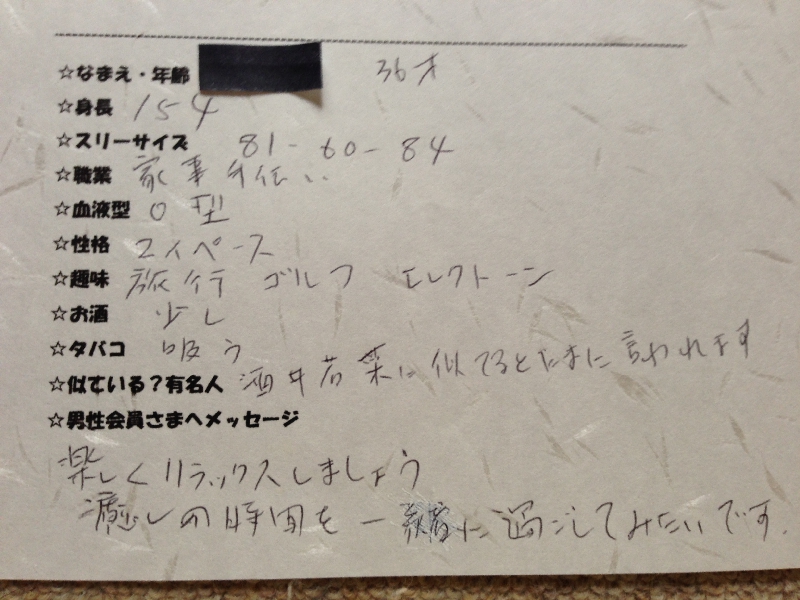 ☆なまえ・年齢 36才
☆身長 154
☆スリーサイズ 81-60-84
☆職業 家事手伝い
☆血液型 O型
☆性格 マイペース
☆趣味 旅行 ゴルフ エレクトーン
☆お酒 少し
☆タバコ 吸う
☆似ている?有名人 酒井若菜に似てるとたまに言われます
☆男性会員さまへメッセージ
楽しくリラックスしましょう
癒しの時間を一緒に過ごしてみたいです。